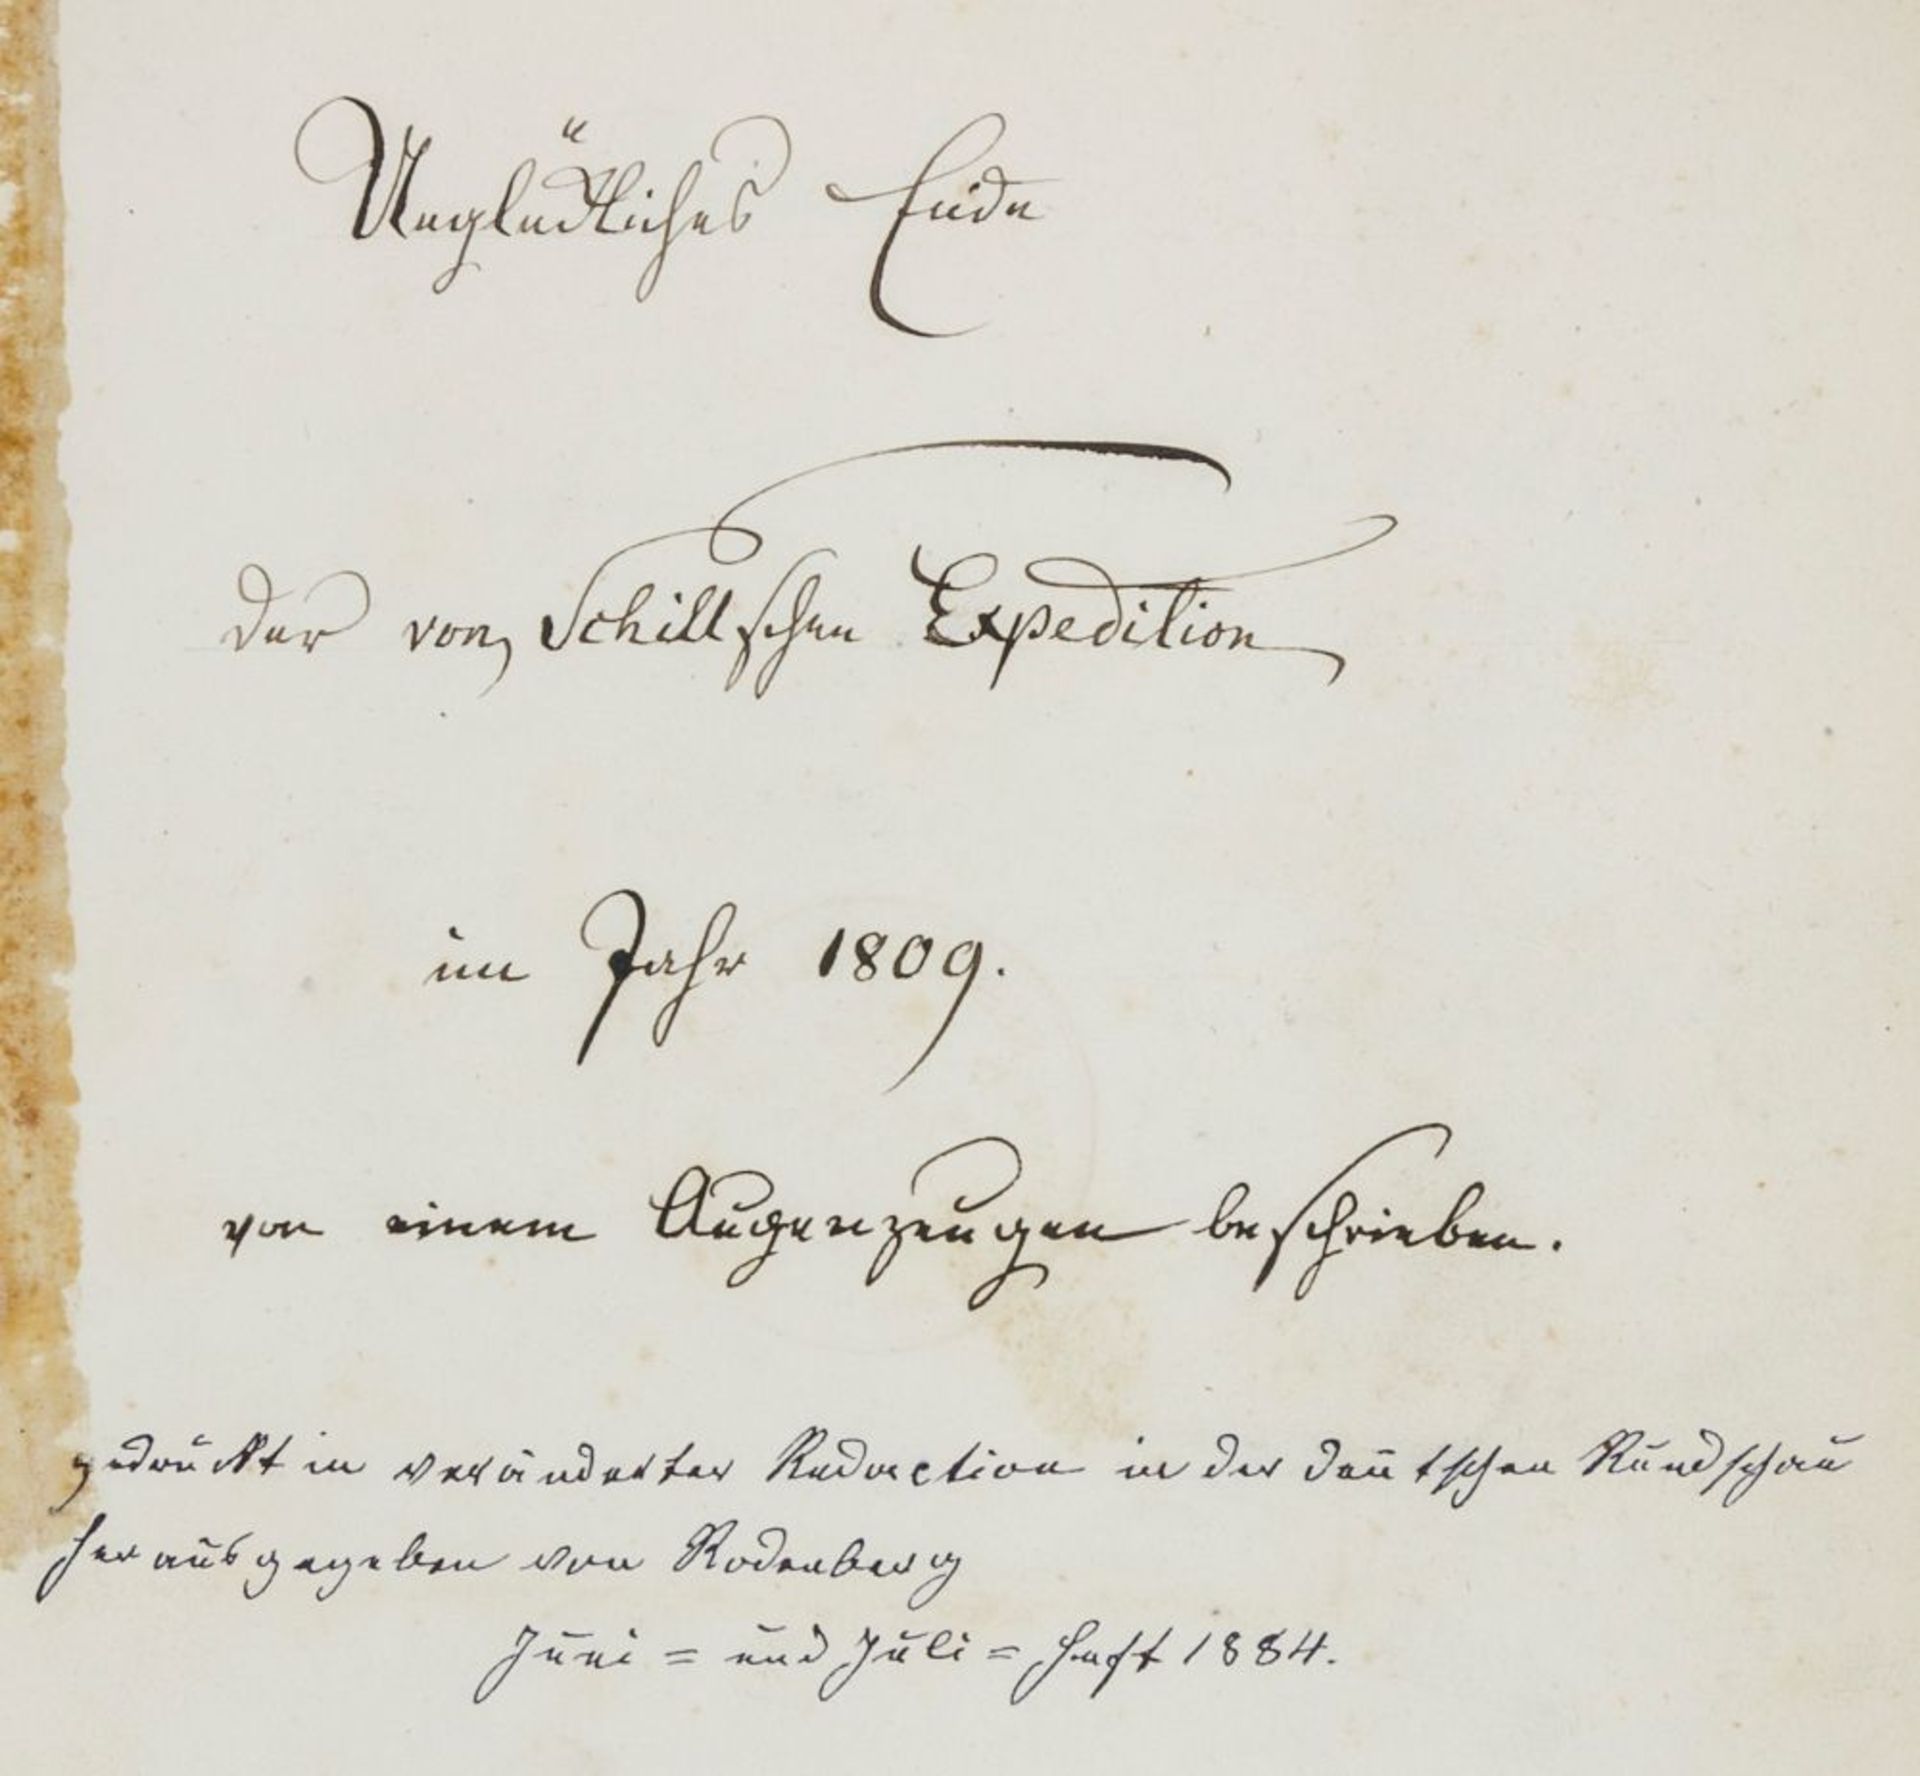 Unglückliches Ende
der von Schillschen Expedition
im Jahr 1809.
von einem Augenzeugen beschrieben.
gedruckt in veränderter Redaction in der deutschen Rundschau
herausgegeben von Rodenberg
Juni = und Juli = Heft 1884.